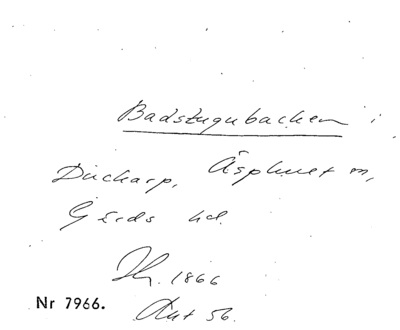 Badstugubacken i
Ducharp, Äsphult m,
Gärds hd.
1866
Nr 7966.
56.